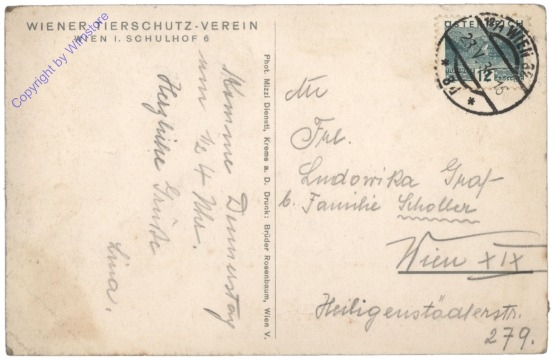 WIENER TIERSCHUTZ-VEREIN
WIEN I. SCHULHOF 6
Copyright by Wimstore
Komme Donnerstag
um ½ 4 Uhr.
Herzliche Grüße
Lina.
Phot. Mizzi Dienstl, Krems a. D. Druck: Brüder Rosenbaum, Wien V.
WIEN
12
An
Frl.
Ludowika Graf
b. Familie Scholler
Wien XIX
Heiligenstädterstr.
279.